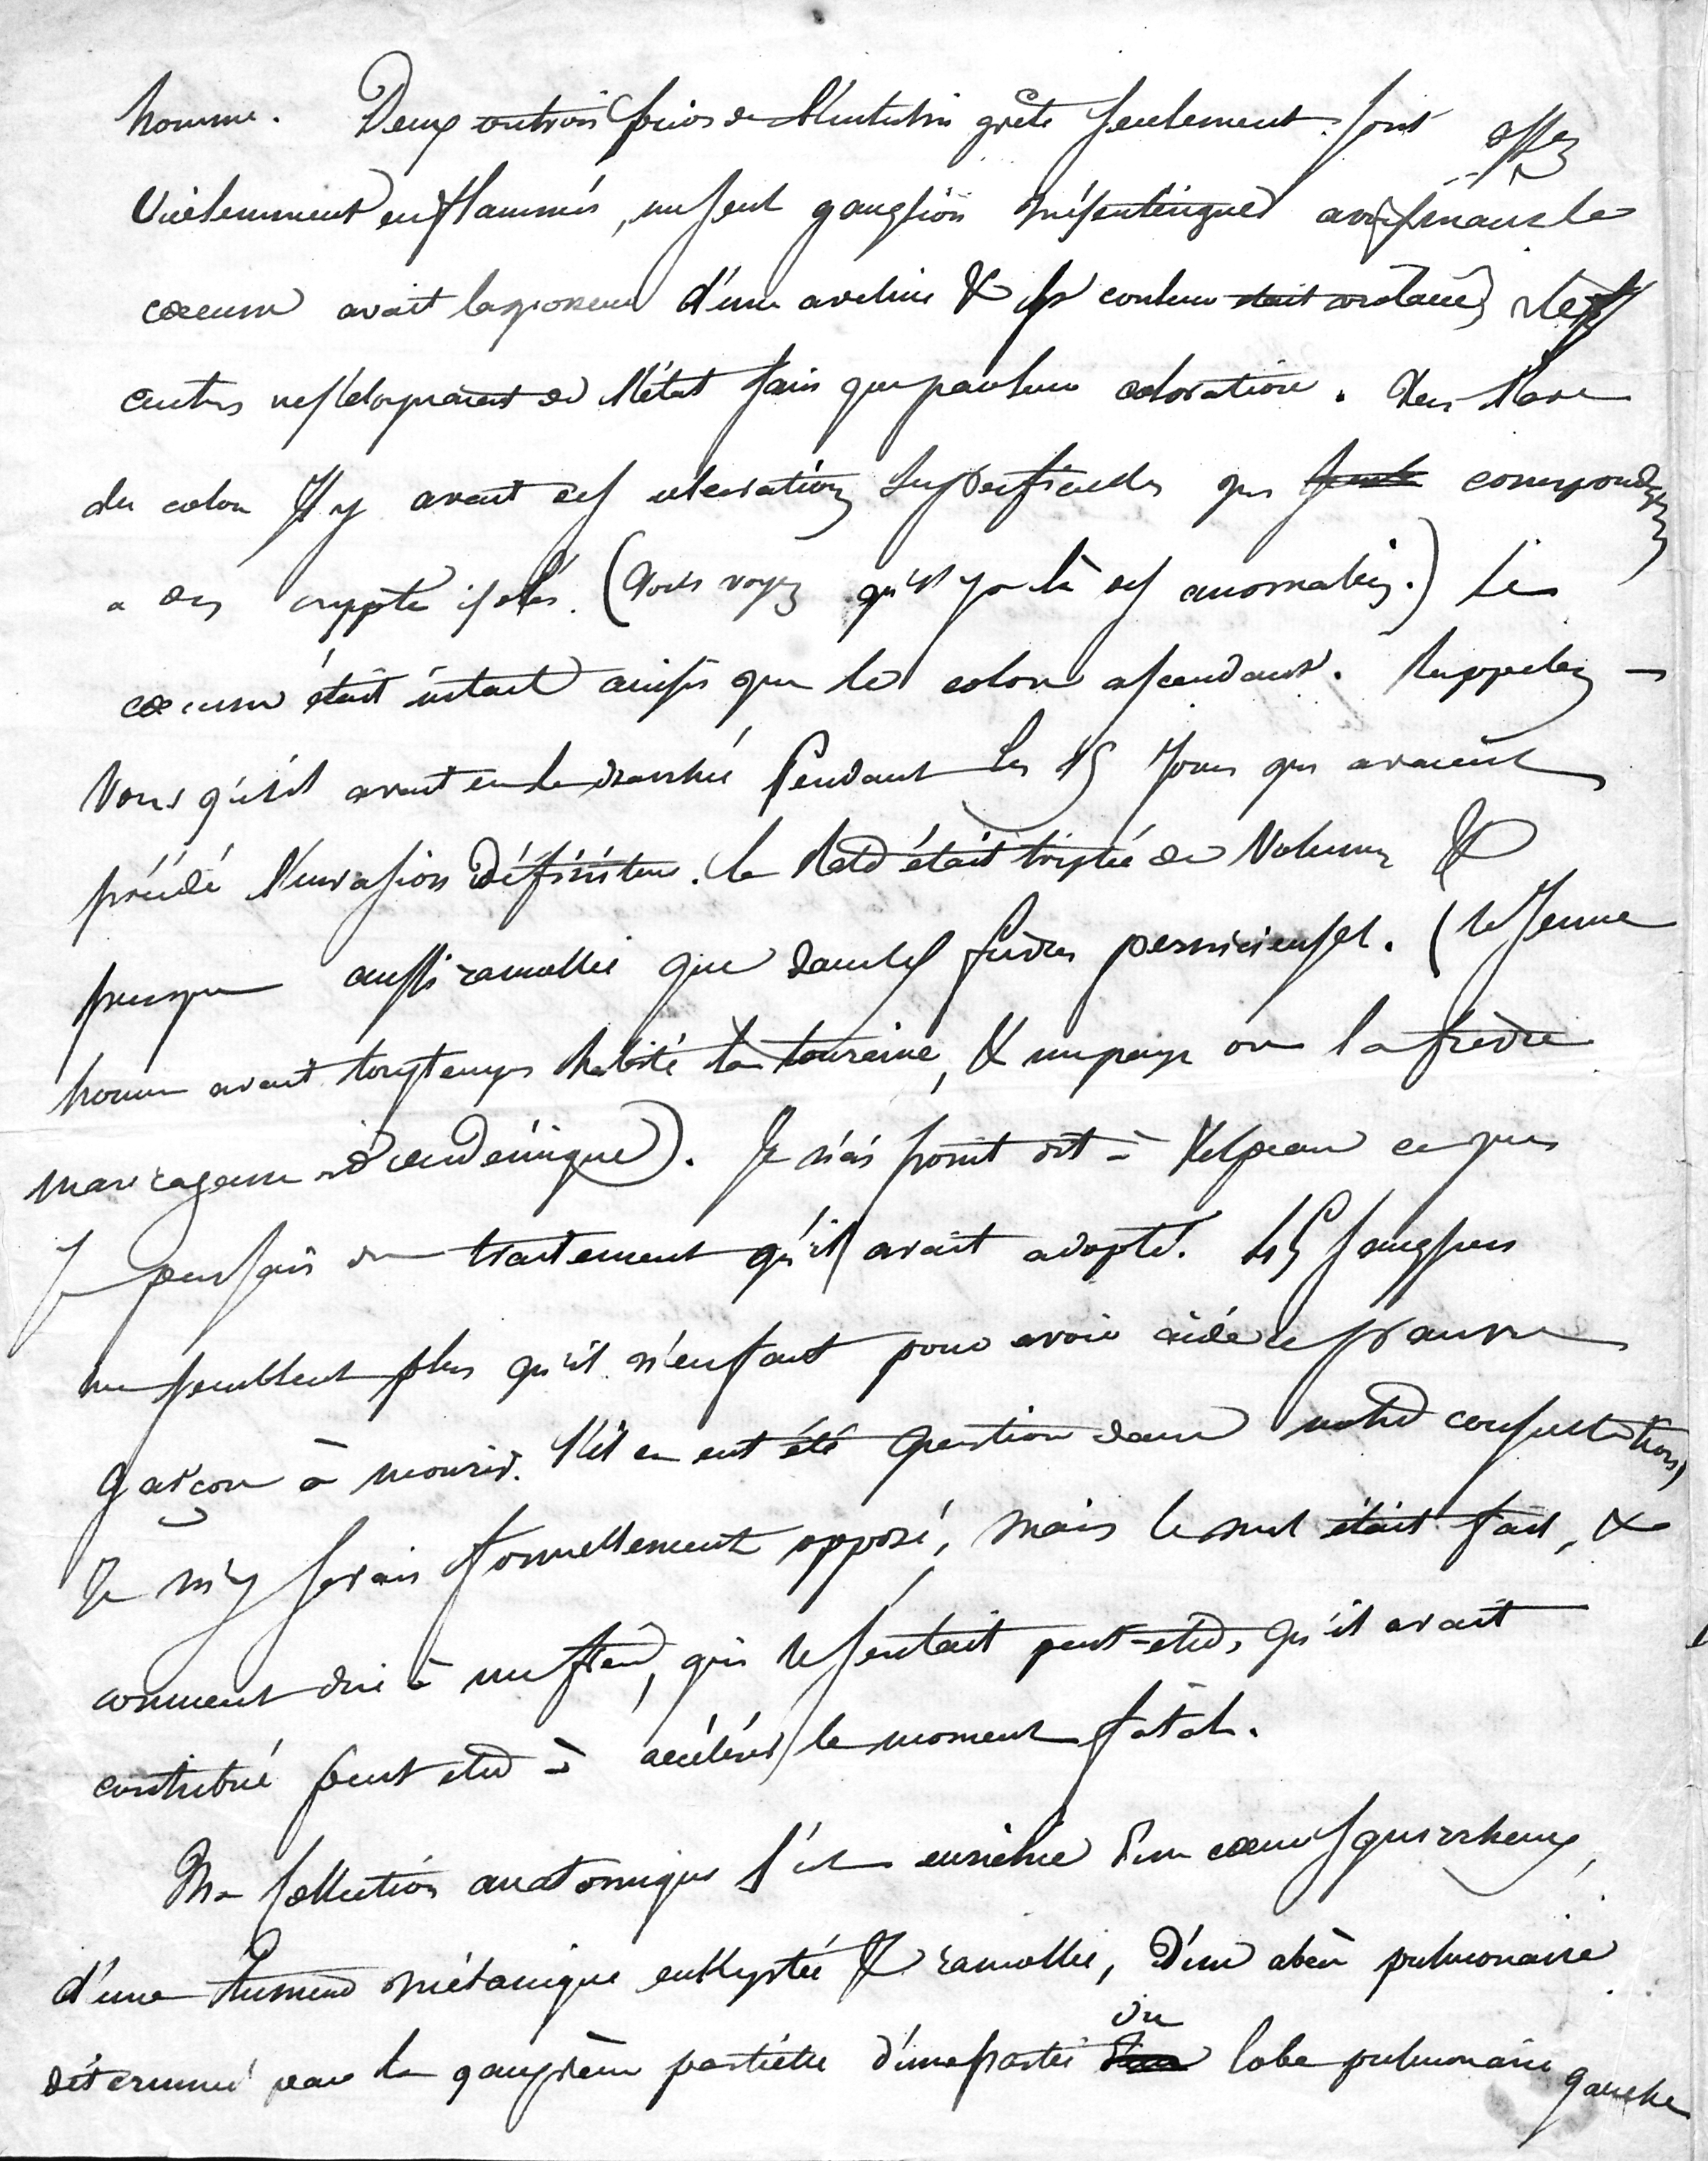 homme. Deux ou trois follicules de l'intestin grêle seulement sont assez
violemment enflammés, un seul ganglion mésentérique avoisinant le
cœcum avait la grosseur d'une aveline & la couleur les
autres ne s'éloignaient de l'état sain que par leur coloration. Dans l'arc
du colon Il y avait des ulcérations superficielles qui correspondaient
a des crypte isolés. (vous voyez qu'il y a là des anomalies.) Le
cœcum était intact ainsi que le colon ascendant. Rappelez-
vous qu'il avait eu la diarrhée Pendant les 15 Jours qui avaient
précédé l'invasion définitive. la rate était triplée de Volume &
presque aussi ramollie que dans les fièvres pernicieuses. (le Jeune
homme avait longtemps habité la touraine, & un pays ou la fièvre
marécageuse est endémique). Je n'ai point dit à Velpeau ce que
Je pensais du traitement qu'il avait adopté. 45 sangsues
me semblent plus qu'il n'en faut pour avoir aidé ce pauvre
garçon à mourir. S'il en eut été question dans notre consultation,
Je m'y serais formellement opposé, mais le mal était fait, &
comment dire à un frère, qui le sentait peut-etre, qu'il avait
contribué peut etre à accélérer le moment fatal.
Ma collection anatomique s'est enrichie d'un cœur squirrheux,
d'une tumeur mélanique enkystée & ramollie, D'un abcès pulmonaire
déterminé par la gangrène partielle d'une partie du lobe pulmonaire gauche